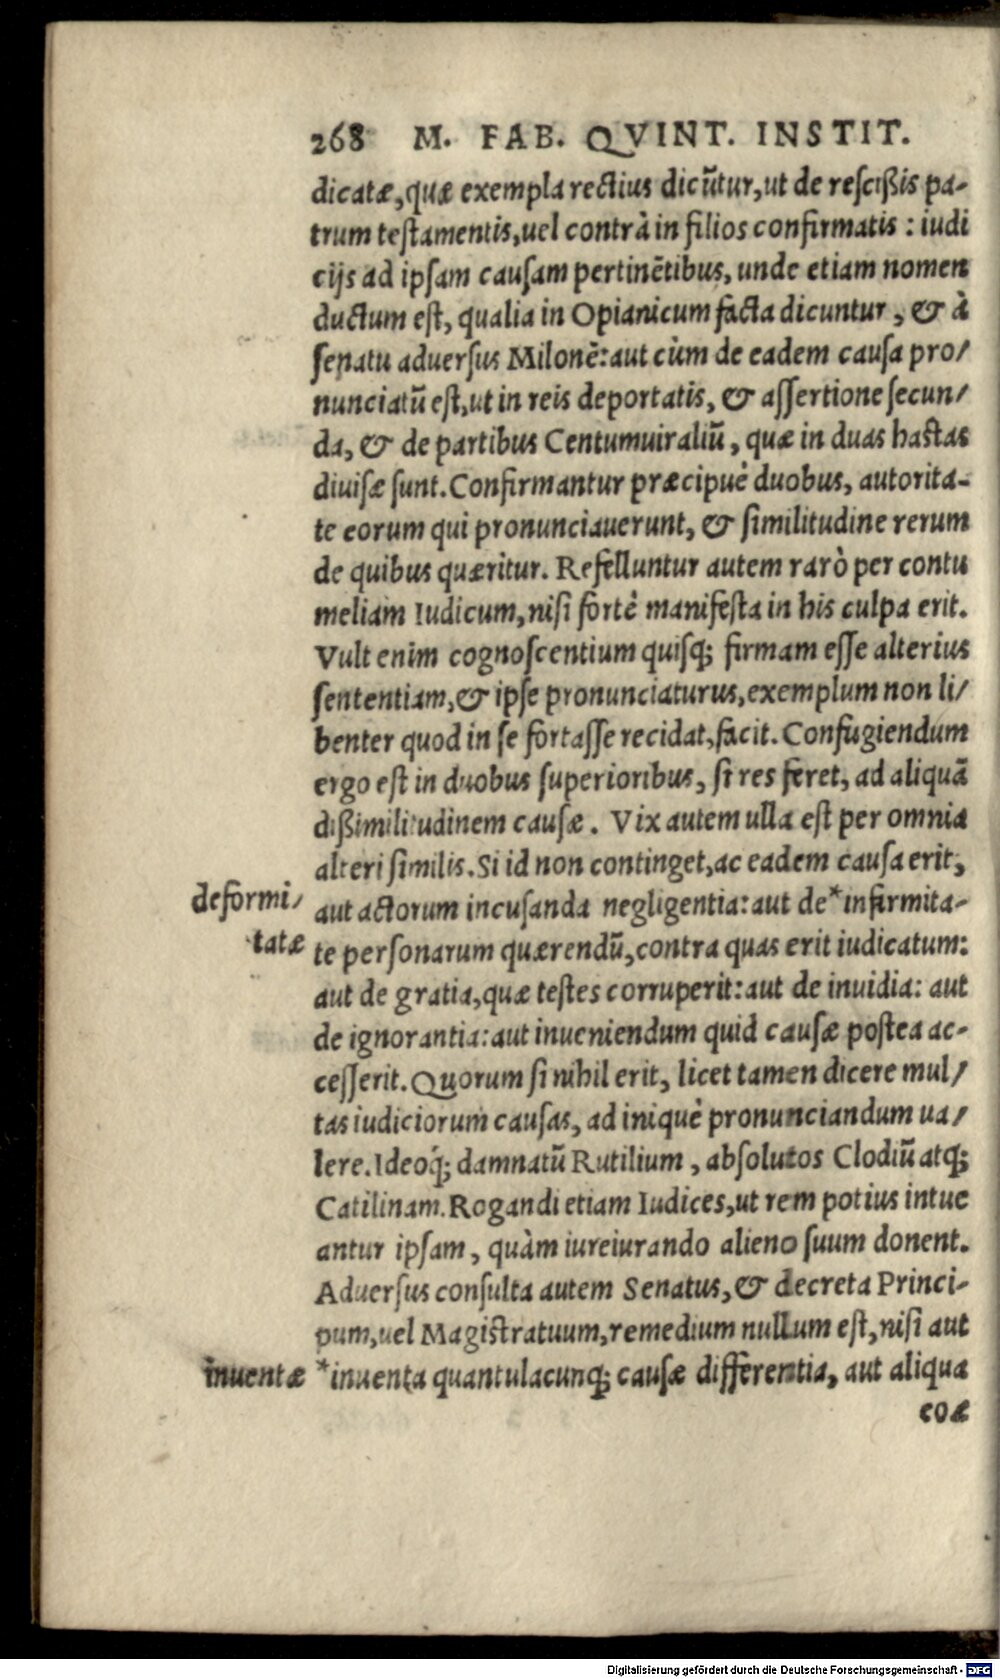 268 M. FAB. QVINT. INSTIT.
dicatæ, quæ exempla rectius dicũtur, ut de rescißis pa-
trum testamentis, uel contrà in filios confirmatis: iudi
cijs ad ipsam causam pertinẽtibus, unde etiam nomen
ductum est, qualia in Opianicum facta dicuntur, & à
senatu aduersus Milonẽ: aut cùm de eadem causa pro/
nunciatũ est, ut in reis deportatis, & assertione secun/
da, & de partibus Centumuiraliũ, quæ in duas hastas
diuisæ sunt. Confirmantur præcipuè duobus, autorita-
te eorum qui pronunciauerunt, & similitudine rerum
de quibus quæritur. Refelluntur autem rarò per contu
meliam Iudicum, nisi fortè manifesta in his culpa erit.
Vult enim cognoscentium quisq; firmam esse alterius
sententiam, & ipse pronunciaturus, exemplum non li/
benter quod in se fortasse recidat, facit. Confugiendum
ergo est in duobus superioribus, si res feret, ad aliquã
dißimilitudinem causæ. Vix autem ulla est per omnia
alteri similis. Si id non continget, ac eadem causa erit,
deformi/ aut actorum incusanda negligentia: aut de *infirmita-
tatæ te personarum quærendũ, contra quas erit iudicatum:
aut de gratia, quæ testes corruperit: aut de inuidia: aut
de ignorantia: aut inueniendum quid causæ postea ac-
cesserit. Quorum si nihil erit, licet tamen dicere mul/
tas iudiciorum causas, ad iniquè pronunciandum ua/
lere. Ideoq́; damnatũ Rutilium, absolutos Clodiũ atq;
Catilinam. Rogandi etiam Iudices, ut rem potius intue
antur ipsam, quàm iureiurando alieno suum donent.
Aduersus consulta autem Senatus, & decreta Princi-
pum, uel Magistratuum, remedium nullum est, nisi aut
inuentæ *inuenta quantulacunq; causæ differentia, aut aliqua
eoæ
Digitalisierung gefördert durch die Deutsche Forschungsgemeinschaft - DFG